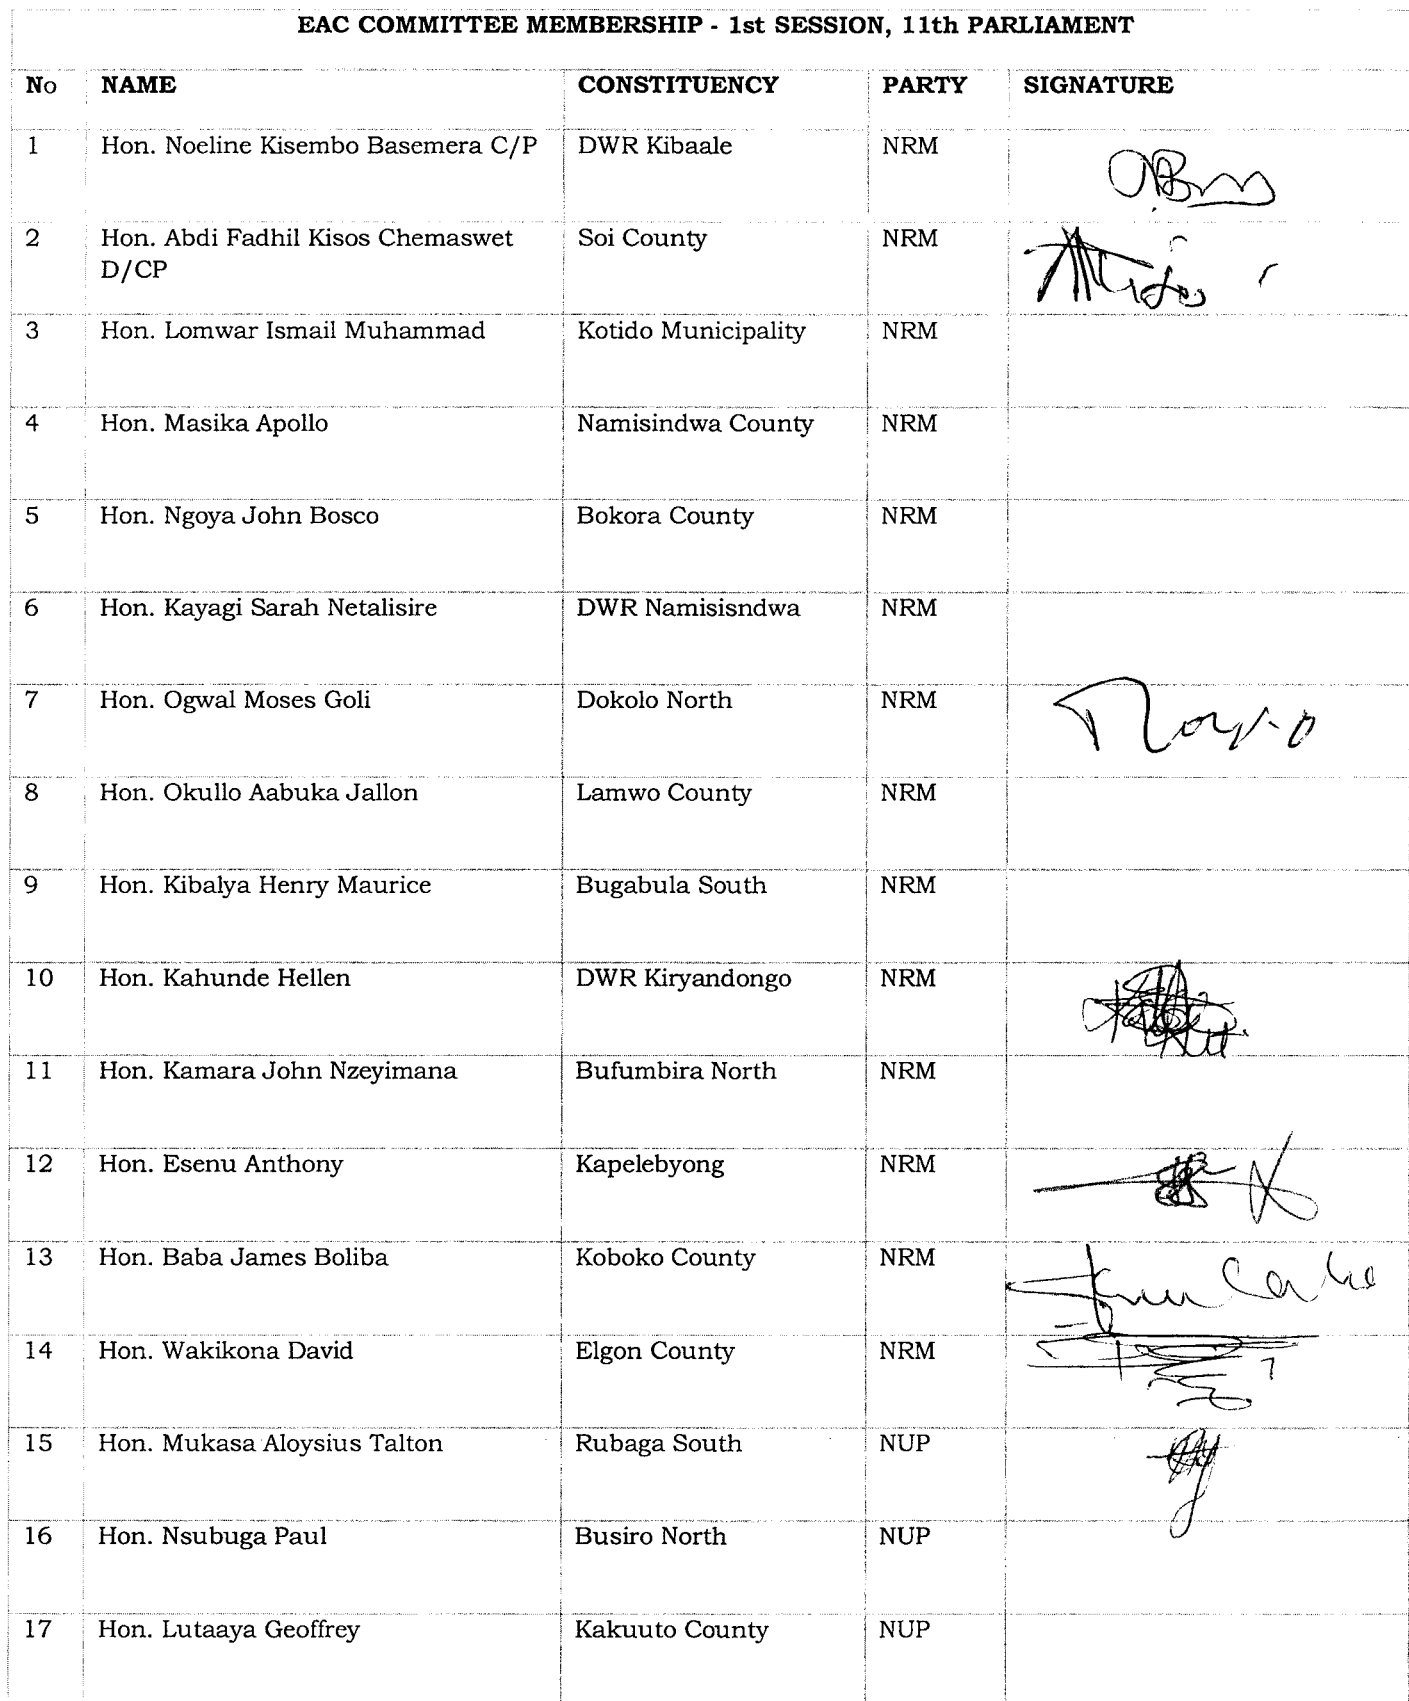 EAC COMMITTEE MEMBERSHIP - 1st SESSION, 11th PARLIAMENT
No NAME CONSTITUENCY PARTY SIGNATURE
1 Hon. Noeline Kisembo Basemera C/P DWR Kibaale NRM
2 Hon. Abdi Fadhil Kisos Chemaswet Soi County NRM
D/CP
3 Hon. Lomwar Ismail Muhammad Kotido Municipality NRM
4 Hon. Masika Apollo Namisindwa County NRM
5 Hon. Ngoya John Bosco Bokora County NRM
6 Hon. Kayagi Sarah Netalisire DWR Namisisndwa NRM
7 Hon. Ogwal Moses Goli Dokolo North NRM
8 Hon. Okullo Aabuka Jallon Lamwo County NRM
9 Hon. Kibalya Henry Maurice Bugabula South NRM
10 Hon. Kahunde Hellen DWR Kiryandongo NRM
11 Hon. Kamara John Nzeyimana Bufumbira North NRM
12 Hon. Esenu Anthony Kapelebyong NRM
13 Hon. Baba James Boliba Koboko County NRM
14 Hon. Wakikona David Elgon County NRM
15 Hon. Mukasa Aloysius Talton Rubaga South NUP
16 Hon. Nsubuga Paul Busiro North NUP
17 Hon. Lutaaya Geoffrey Kakuuto County NUP